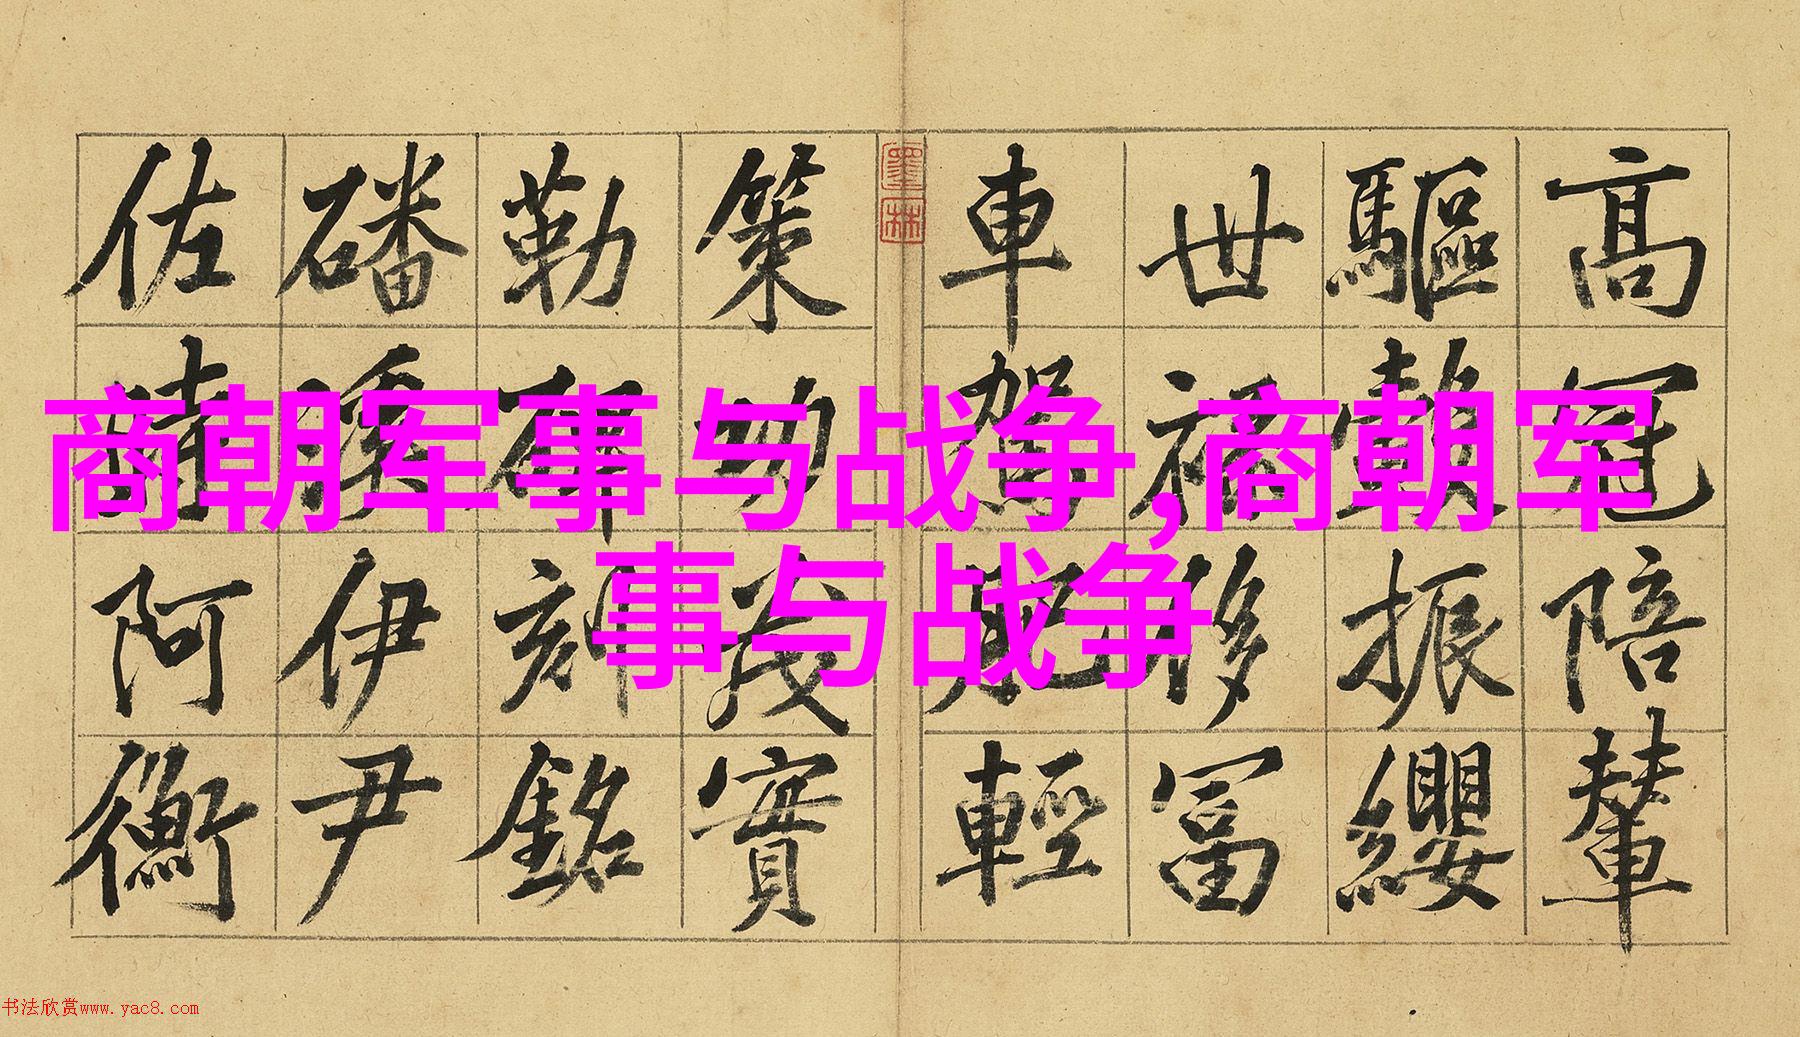 高冠陪輦
驅轂振纓
世禄侈富
車駕肥輕
策功茂實
勒碑刻銘
磻溪伊尹
佐時阿衡
墨林
商朝军事与战争,商朝军
事与战争
书法欣赏www.yac8.com